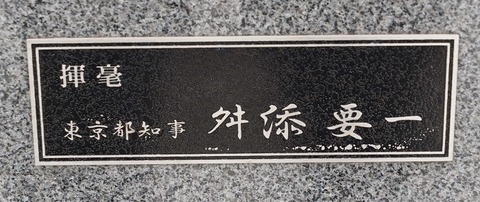 揮毫
東京都知事 舛添要一